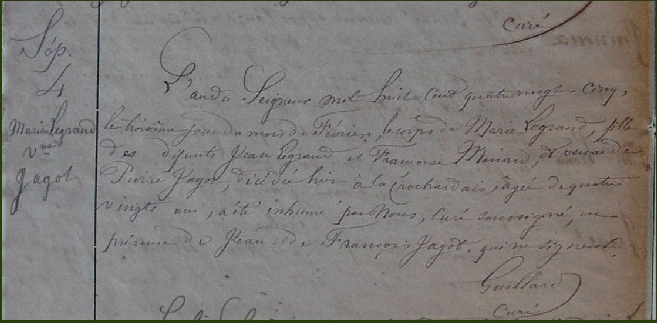 curé
Sép.
4
Marie Legrand
Vve
Jagot
L'an du Seigneur mil huit cent quatre vingt-cinq,
le troisième jour du mois de Février, le corps de Marie Legrand, fille
des défunts Jean Legrand et Françoise Menard, et veuve de
Pierre Jagot, décédée hier à la Crochardais, âgée de quatre
vingts ans, a été inhumé par Nous, Curé soussigné, en
présence de Jean et de François Jagot, qui ne signent.
Guillard
curé